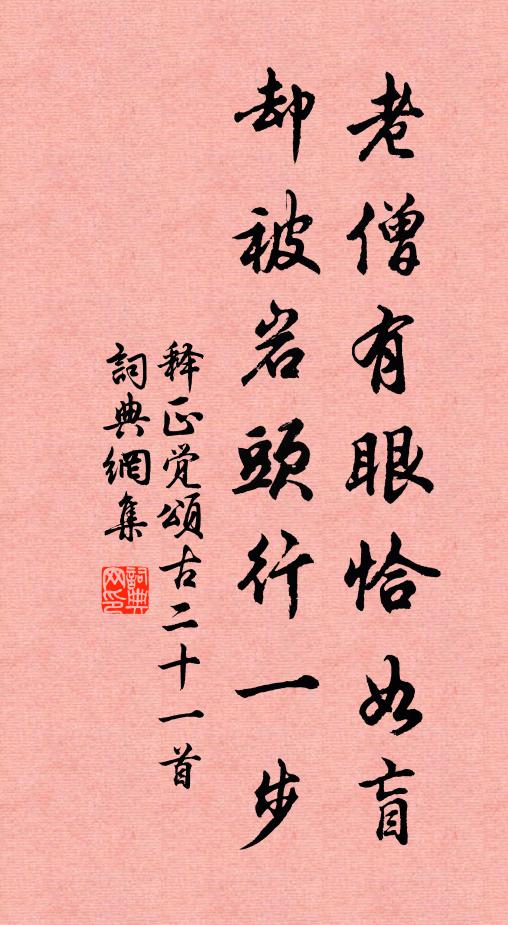 老僧有眼恰如盲
却被岩頭行一步
释正觉颂古二十一首
詞典網集
詞典网印